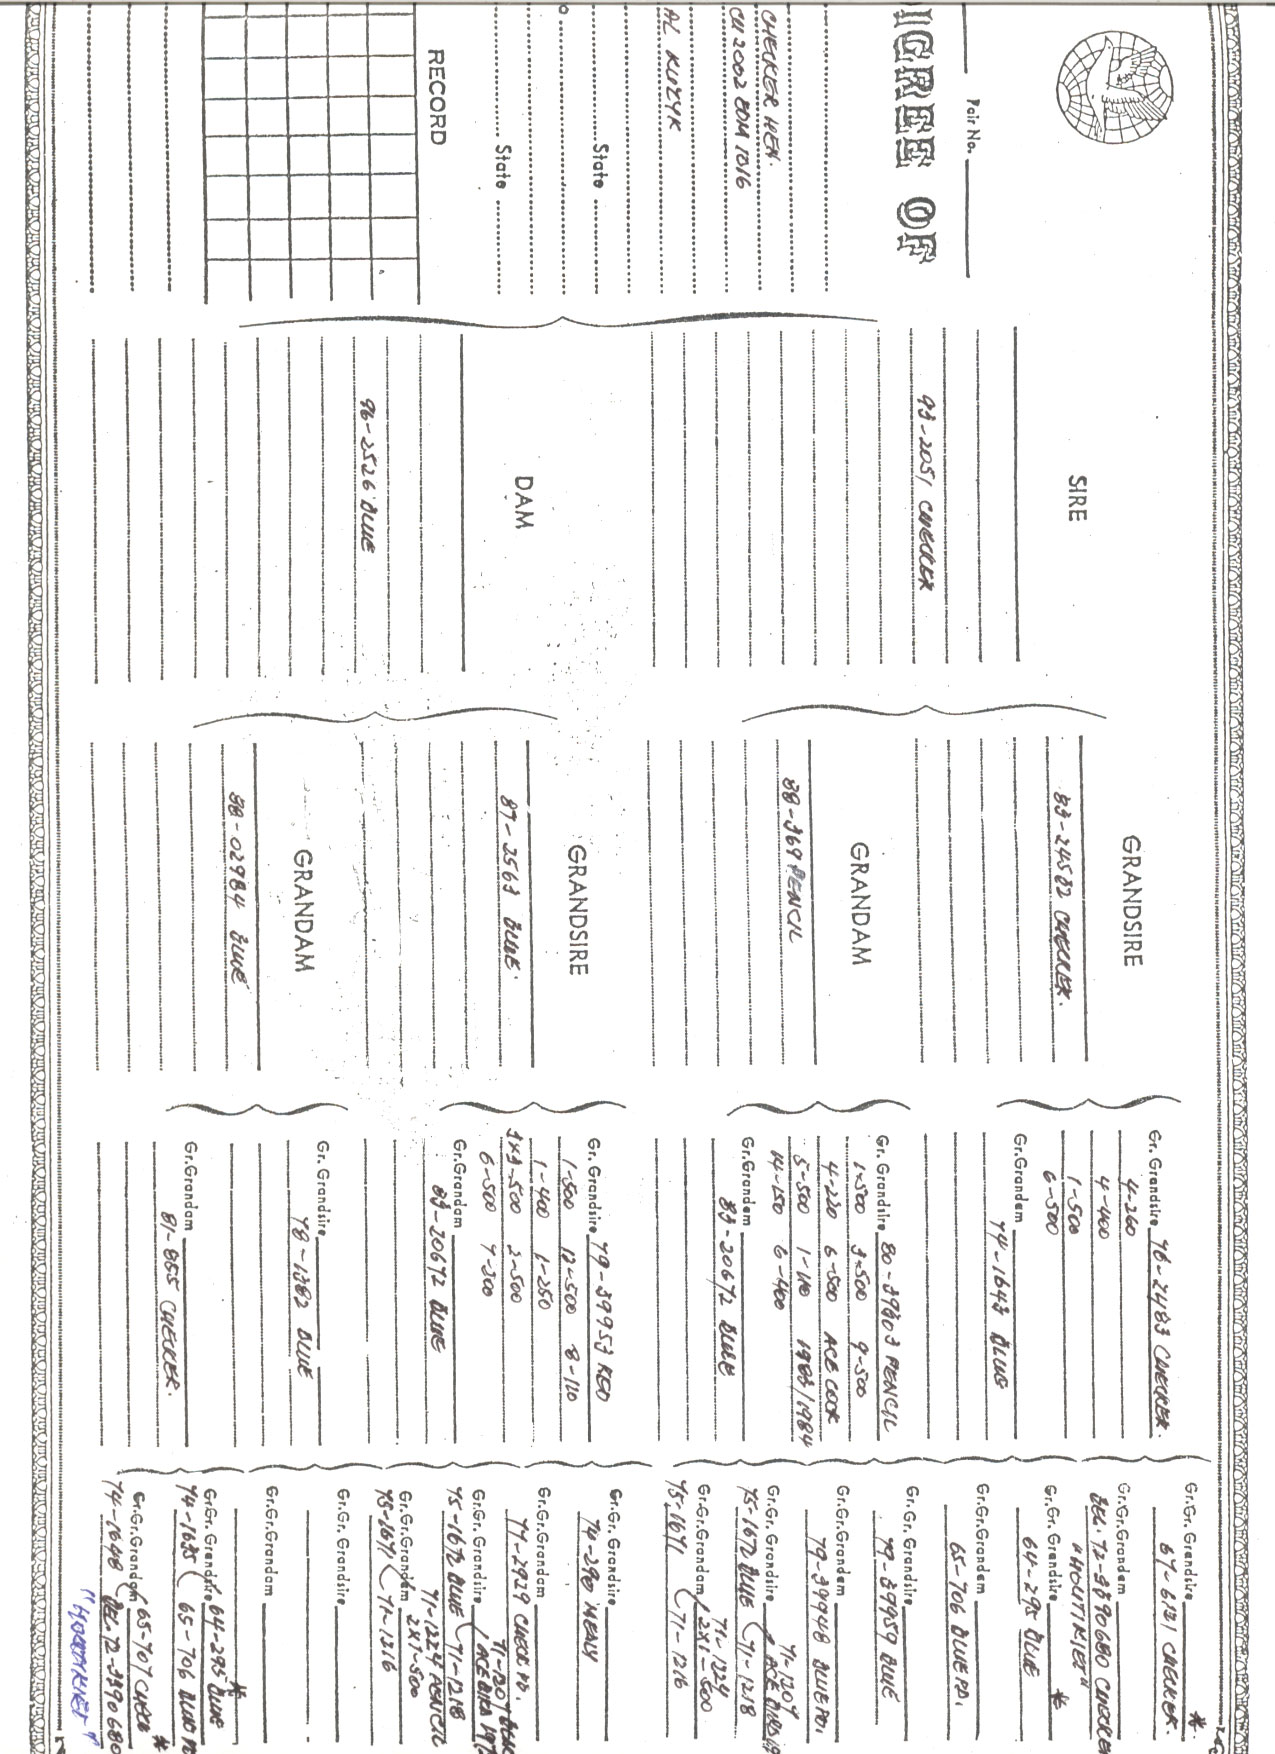 Pair No.
IGREE OF
CHECKER HEN.
CU 2002 BDM 1016
AL KUZYK
State
State
RECORD
SIRE
93-2051 CHECKER
DAM
96-2526 BLUE
GRANDSIRE
83-24582 CHECKER.
GRANDAM
88-369 PENCIL
GRANDSIRE
87-2563 BLUE.
GRANDAM
88-02984 BLUE
Gr. Grandsire 76-2483 CHECKER.
4-260
4-400
1-500
6-500
Gr.Grandam
74-1643 BLUE
Gr. Grandsire 80-39803 PENCIL
1-500 3-500 9-500
4-220 6-500 ACE COCK
5-500 1-110 1983/1984
14-150 6-400
Gr.Grandam
83-20672 BLUE
Gr. Grandsire 79-39953 RED
1-500 12-500 8-120
1-400 1-250
3x3-500 2-500
6-500 7-300
Gr.Grandam
83-20672 BLUE
Gr. Grandsire
78-1382 BLUE
Gr.Grandam
81-855 CHECKER.
Gr.Gr. Grandsire *
67-6131 CHECKER.
Gr.Gr.Grandam
BEL. 72-3390680 CHECKER
"HOUTKIET"
Gr.Gr. Grandsire *
64-295 BLUE
Gr.Gr.Grandam
65-706 BLUE PD.
Gr.Gr. Grandsire
79-39959 BLUE
Gr.Gr.Grandam
79-39948 BLUE PD.
Gr.Gr. Grandsire 71-1207
75-1672 BLUE (71-1218
Gr.Gr.Grandam 71-1224
2x1-500
75-1671 (71-1216
Gr.Gr. Grandsire
74-290 MEALY
Gr.Gr.Grandam
77-2929 CHECK PD.
Gr.Gr. Grandsire
75-1672 BLUE (71-1218
71-1224 PENCIL
Gr.Gr. Grandam 2x1-500
75-1671 (71-1216
Gr.Gr. Grandsire
Gr.Gr.Grandam
Gr.Gr. Grandsire 64-295 BLUE *
74-1635 (65-706 BLUE
Gr.Gr.Grandam 65-707 CHECK *
74-1648 (BEL. 72-3390680
"HOUTKIET"